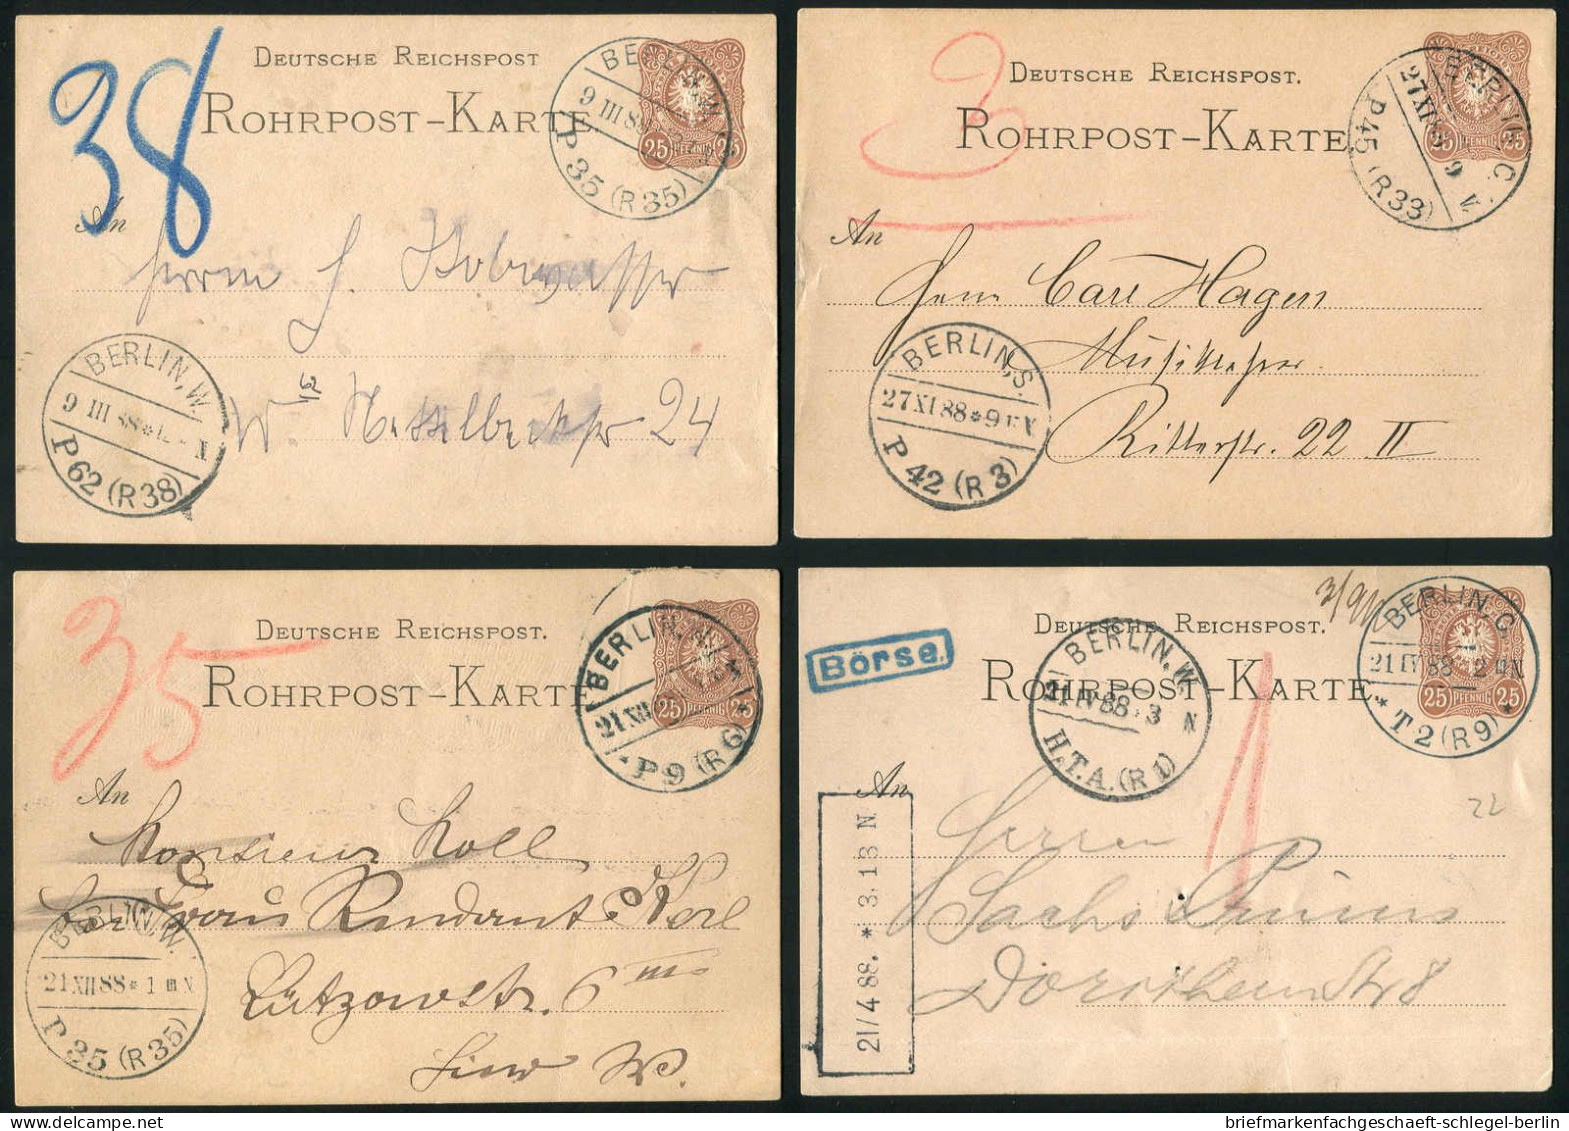 38
DEUTSCHE REICHSPOST
ROHRPOST-KARTE.
25 PFENNIG 25
BERLIN, W.
9 III 88
P 35 (R 35)
An
Herrn J. Bobwasser
W Nettelbeckstr 24
BERLIN, W.
9 III 88 * N
P 62 (R 38)
3
DEUTSCHE REICHSPOST.
ROHRPOST-KARTE
25 PFENNIG 25
BERLIN, C.
27 XI 9 V.
P 45 (R 33)
An
Herrn Carl Hagen
Ritterstr. 22 II
BERLIN, S.
27 XI 88 * 9 V
P 42 (R 3)
35
DEUTSCHE REICHSPOST.
ROHRPOST-KARTE
25 PFENNIG 25
BERLIN, N.
21 XII
P 9 (R 6)
An
Monsieur Koll
Frau Rendant
Lützowstr. 6
W.
BERLIN, W.
21 XII 88 * 1 N
P 35 (R 35)
DEUTSCHE REICHSPOST.
ROHRPOST-KARTE.
25 PFENNIG 25
Börse.
BERLIN, W.
21 IV 88 * 3 N
H.T.A. (R 1)
BERLIN, C.
21 IV 88 2 N
* T 2 (R 9) *
1
22
An
Herrn
Sachs Primus
Dorotheenstr 8
21/4 88. * 3.13 N
briefmarkenfachgeschaeft-schlegel-berlin